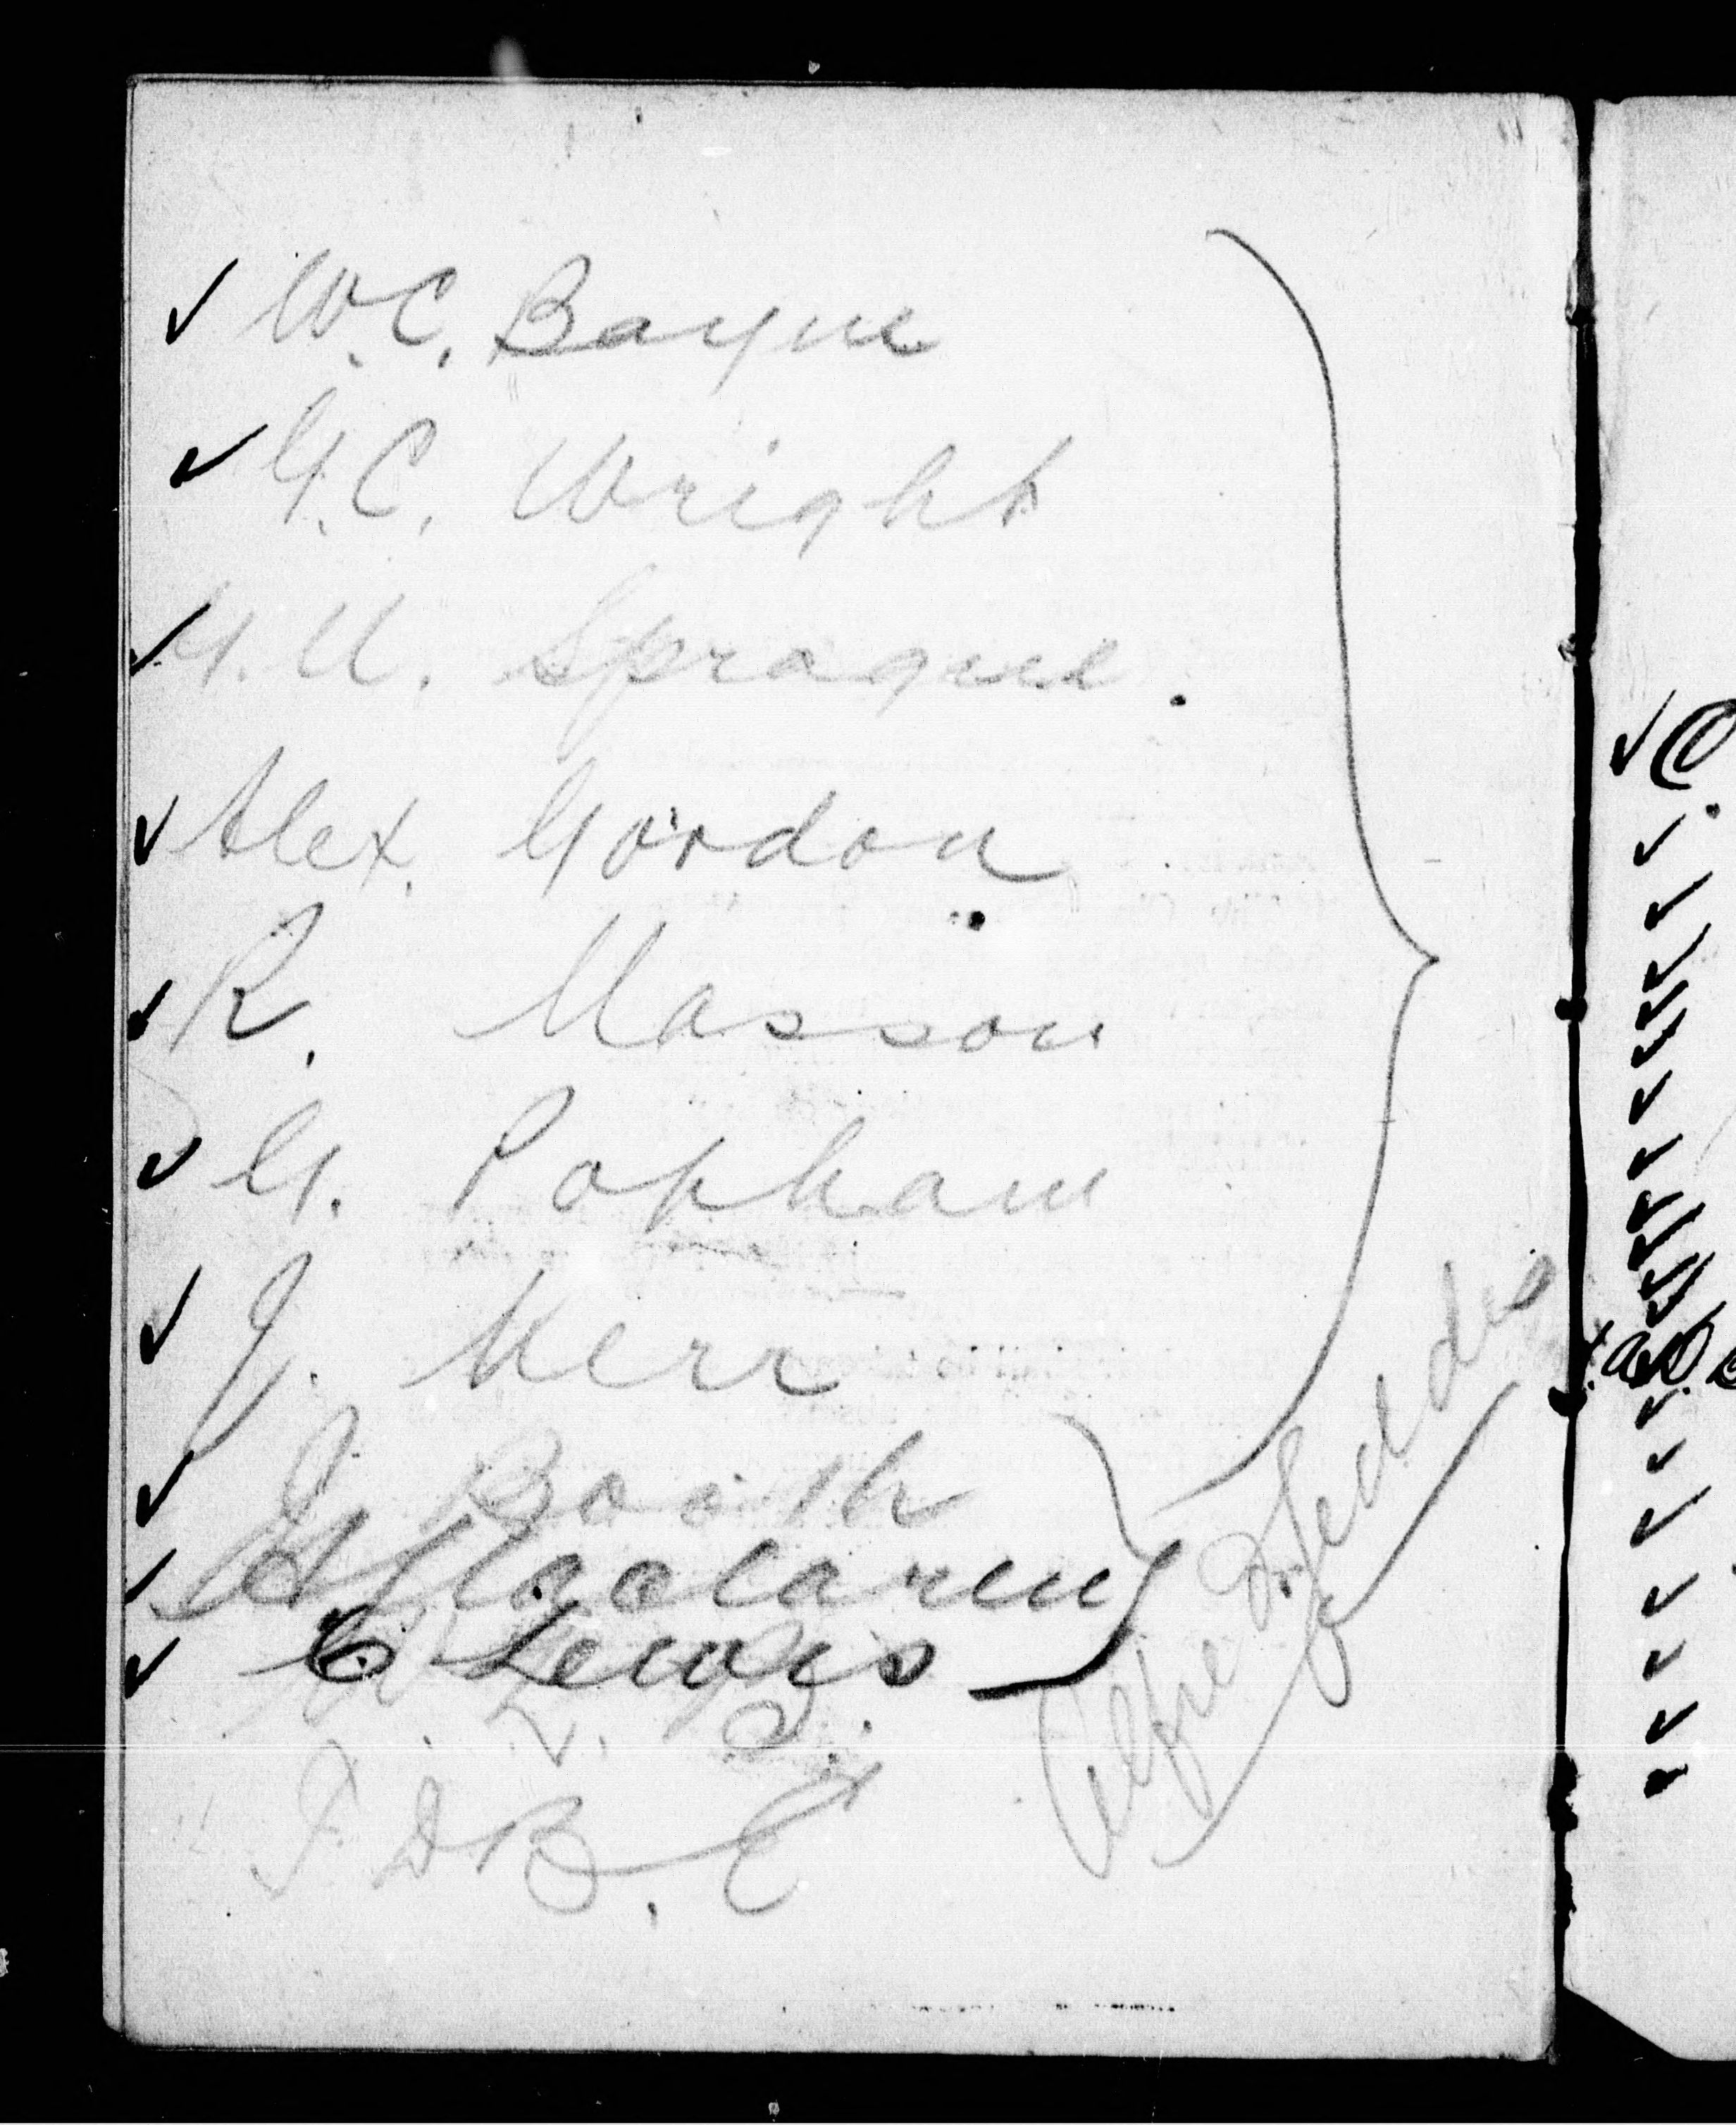 ✓ W.C. Bayne
✓ G.C. Wright
✓ G. U. Sprague.
✓ Alex. Gordon
✓ R. Masson
✓ G. Popham
✓ J. Kerr
✓ J. Booth
✓ Maclaren
✓ C Lewis
F D B. C
Alfie